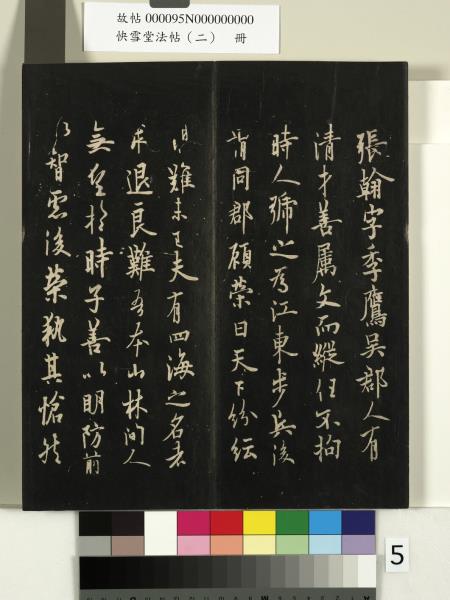 故帖 000095N000000000
快雪堂法帖（二） 冊
張翰字季鷹吳郡人有
清才善属文而縱任不拘
時人號之為江東步兵後
謂同郡顧榮曰天下紛紜
難未已夫有四海之名者
求退良難吾本山林間人
無望於時子善以明防前
以智慮後榮執其愴然
5